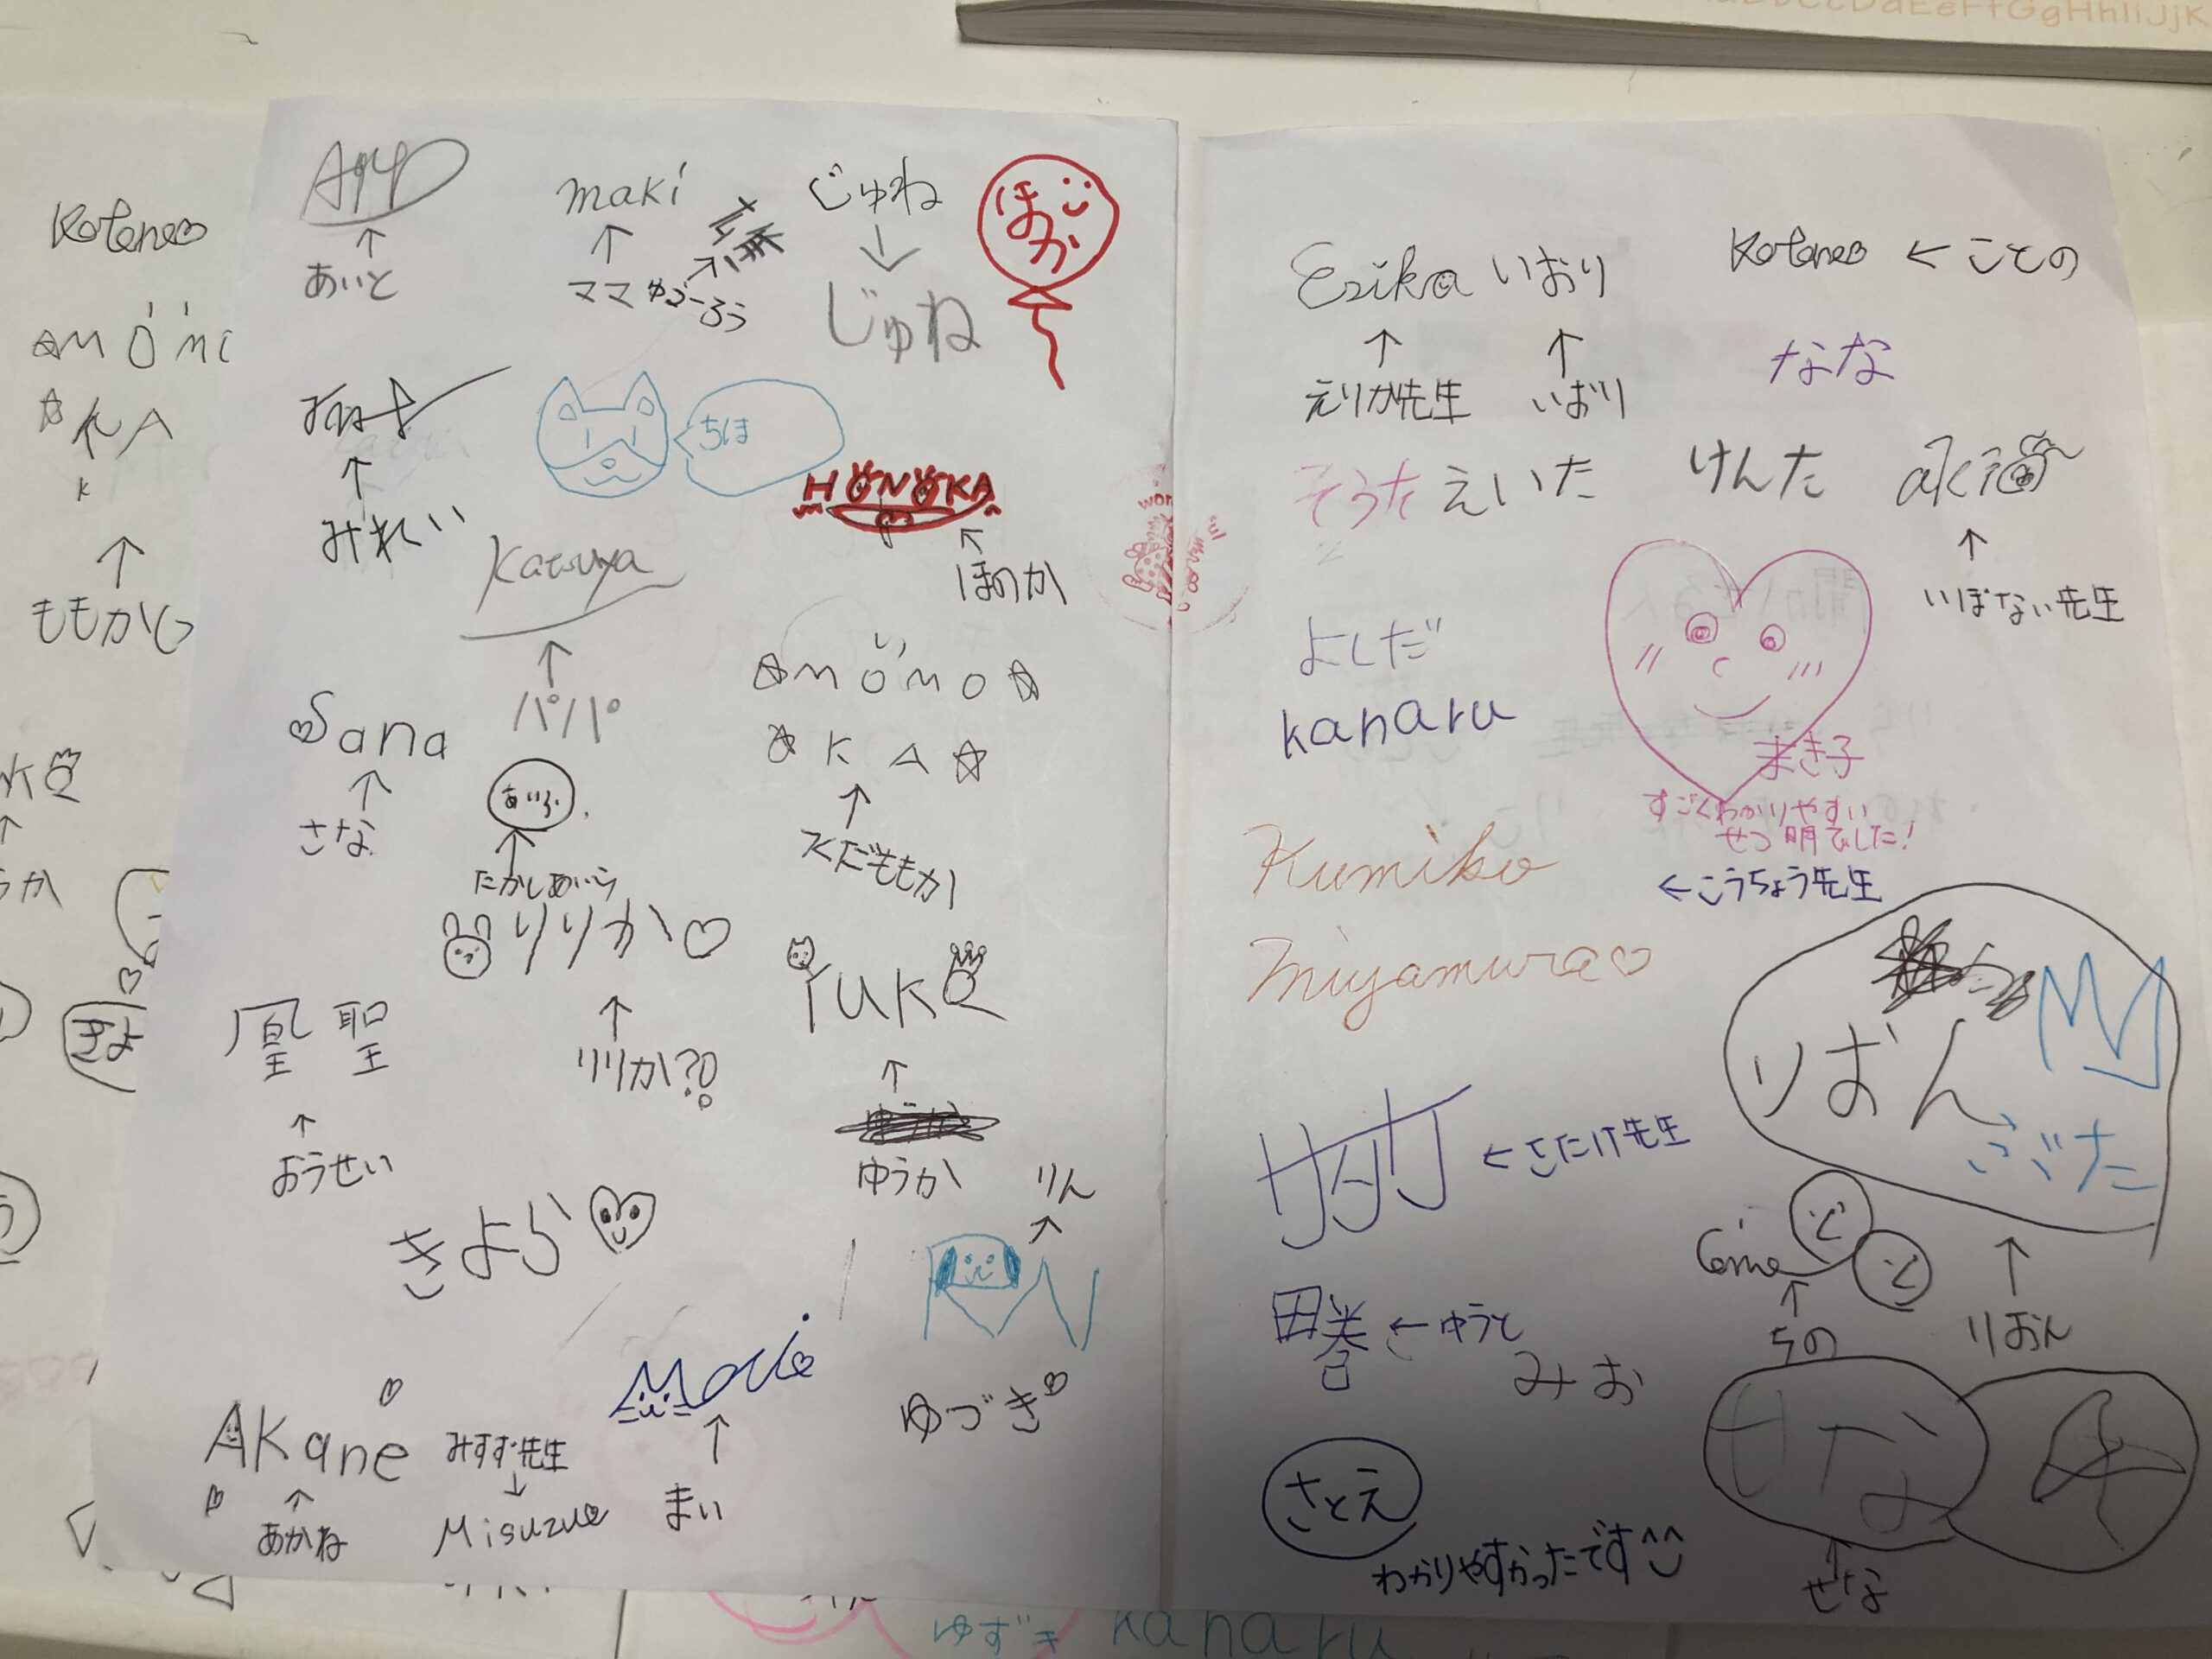 maki
じゅね
ほのか
あいと
ママ
じゅね
みれい
ちほ
HONOKA
ほのか
Katsuya
パパ
Sana
さな
KA
くだももか
りりか
りりか??
YUKA
ゆうか
凰聖
おうせい
きよら
りん
ゆづき
Akane
あかね
みすず先生
Misuzu
まい
Erika
いおり
Kotono
ことの
えりか先生
いおり
なな
そうた
えいた
けんた
いぼない先生
よしだ
kanaru
まき子
すごくわかりやすい
せつ明でした!
Kumiko
Miyamura
こうちょう先生
りおん
さたけ先生
ゆうと
みお
ちの
りおん
さとえ
わかりやすかったです
せな
せな
Kotono
KA
ももか
きよ
ゆずき
kanaru